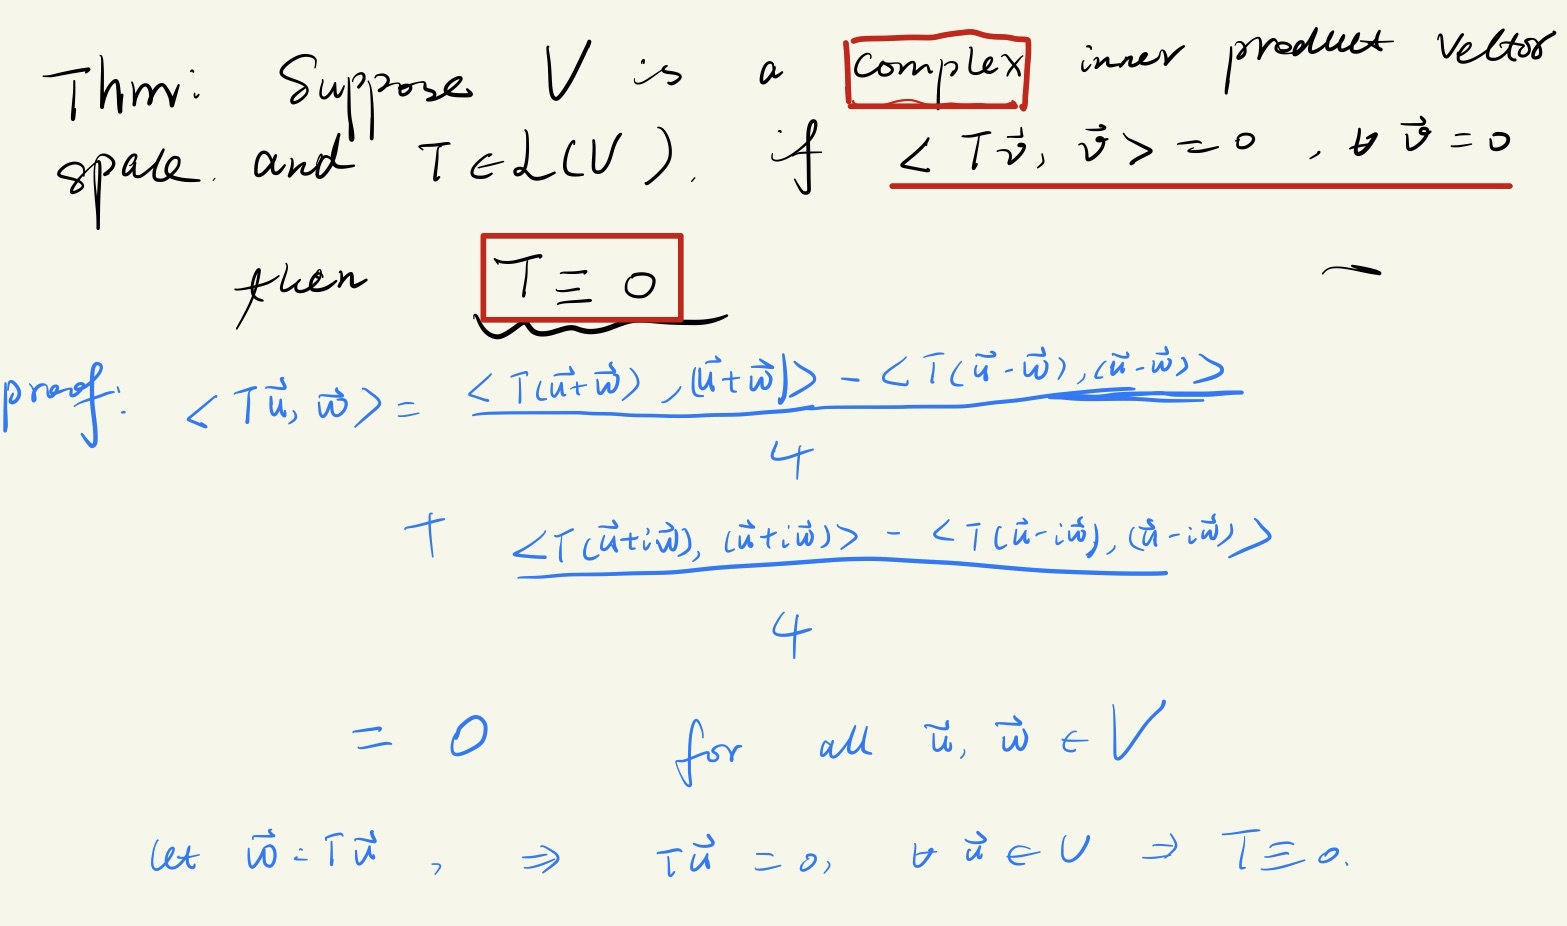 Thm: Suppose V is a complex inner product vector
space. and T ∈ L(V). if < T v⃗, v⃗ > = 0 , ∀ v⃗ = 0
then T ≡ 0
proof: < T u⃗, w⃗ > = < T(u⃗ + w⃗) , (u⃗ + w⃗) > - < T(u⃗ - w⃗), (u⃗ - w⃗) >
4
+ < T(u⃗ + i w⃗), (u⃗ + i w⃗) > - < T(u⃗ - i w⃗), (u⃗ - i w⃗) >
4
= 0 for all u⃗, w⃗ ∈ V
let w⃗ = T u⃗ , ⇒ T u⃗ = 0, ∀ u⃗ ∈ V ⇒ T ≡ 0.